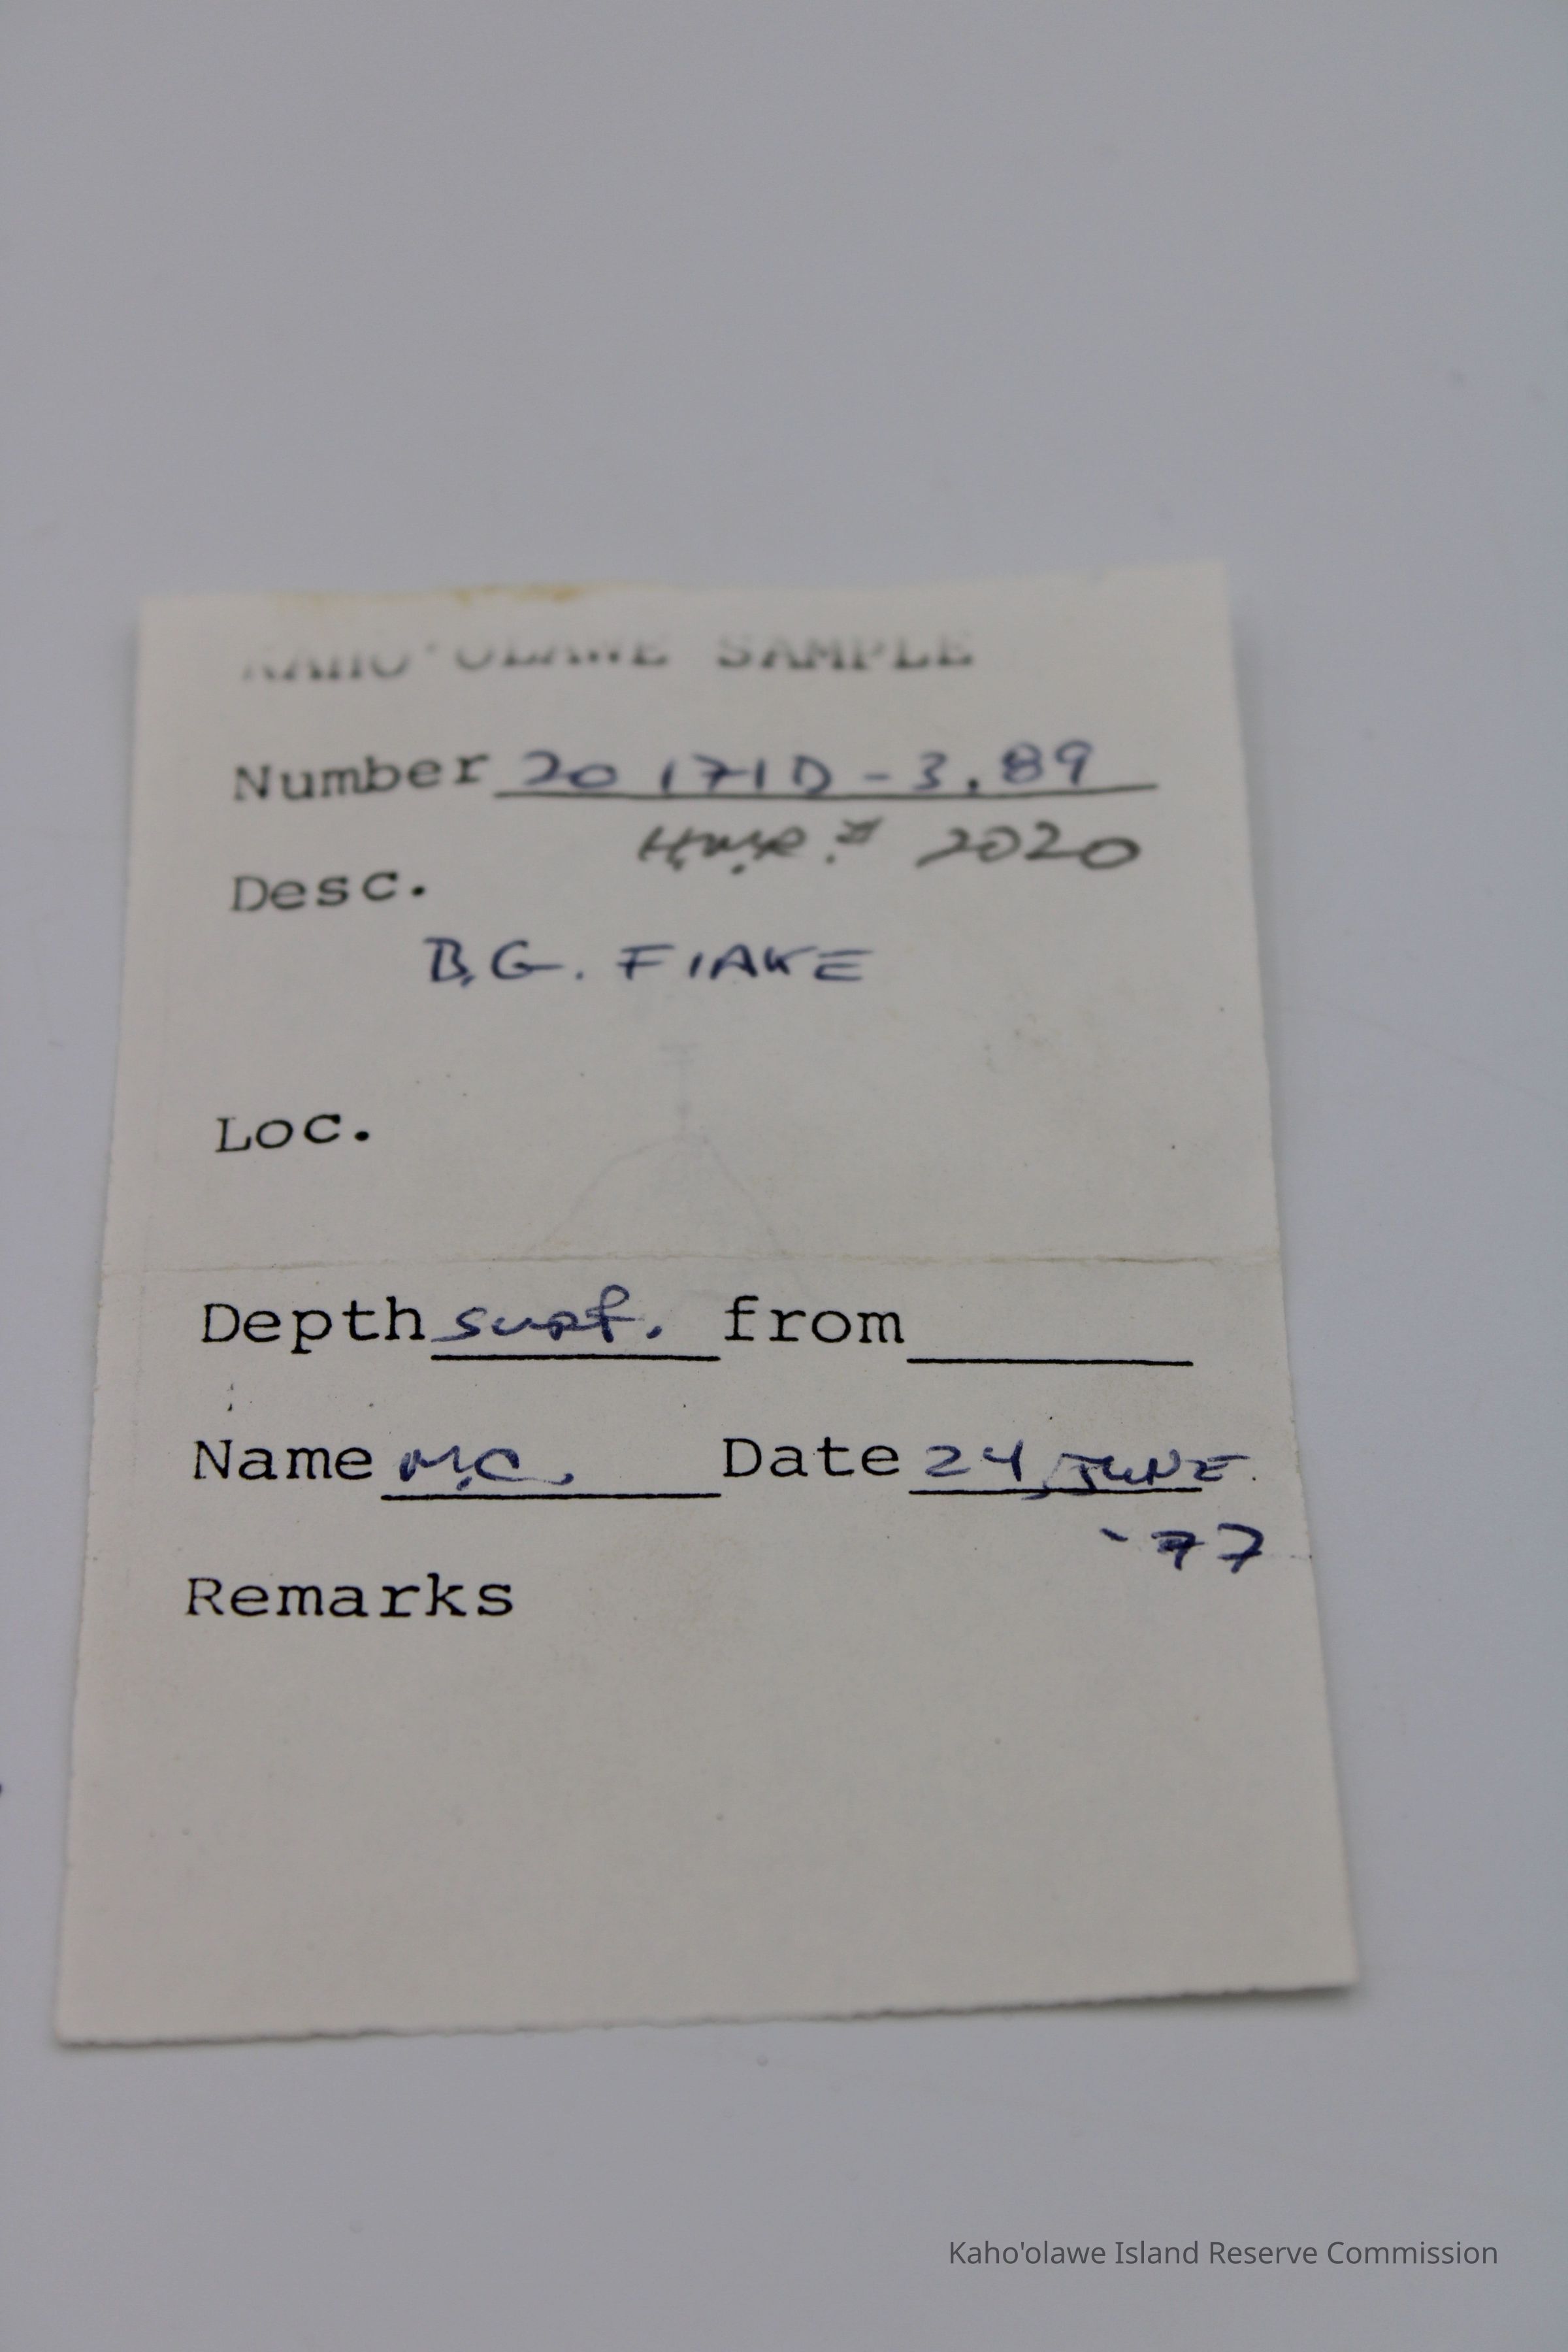 KAHO'OLAWE SAMPLE
Number 20 171D - 3.89
# 2020
Desc.
B.G. FlAKE
Loc.
Depth surf. from
Name M.C. Date 24 JUNE
'77
Remarks
Kaho'olawe Island Reserve Commission